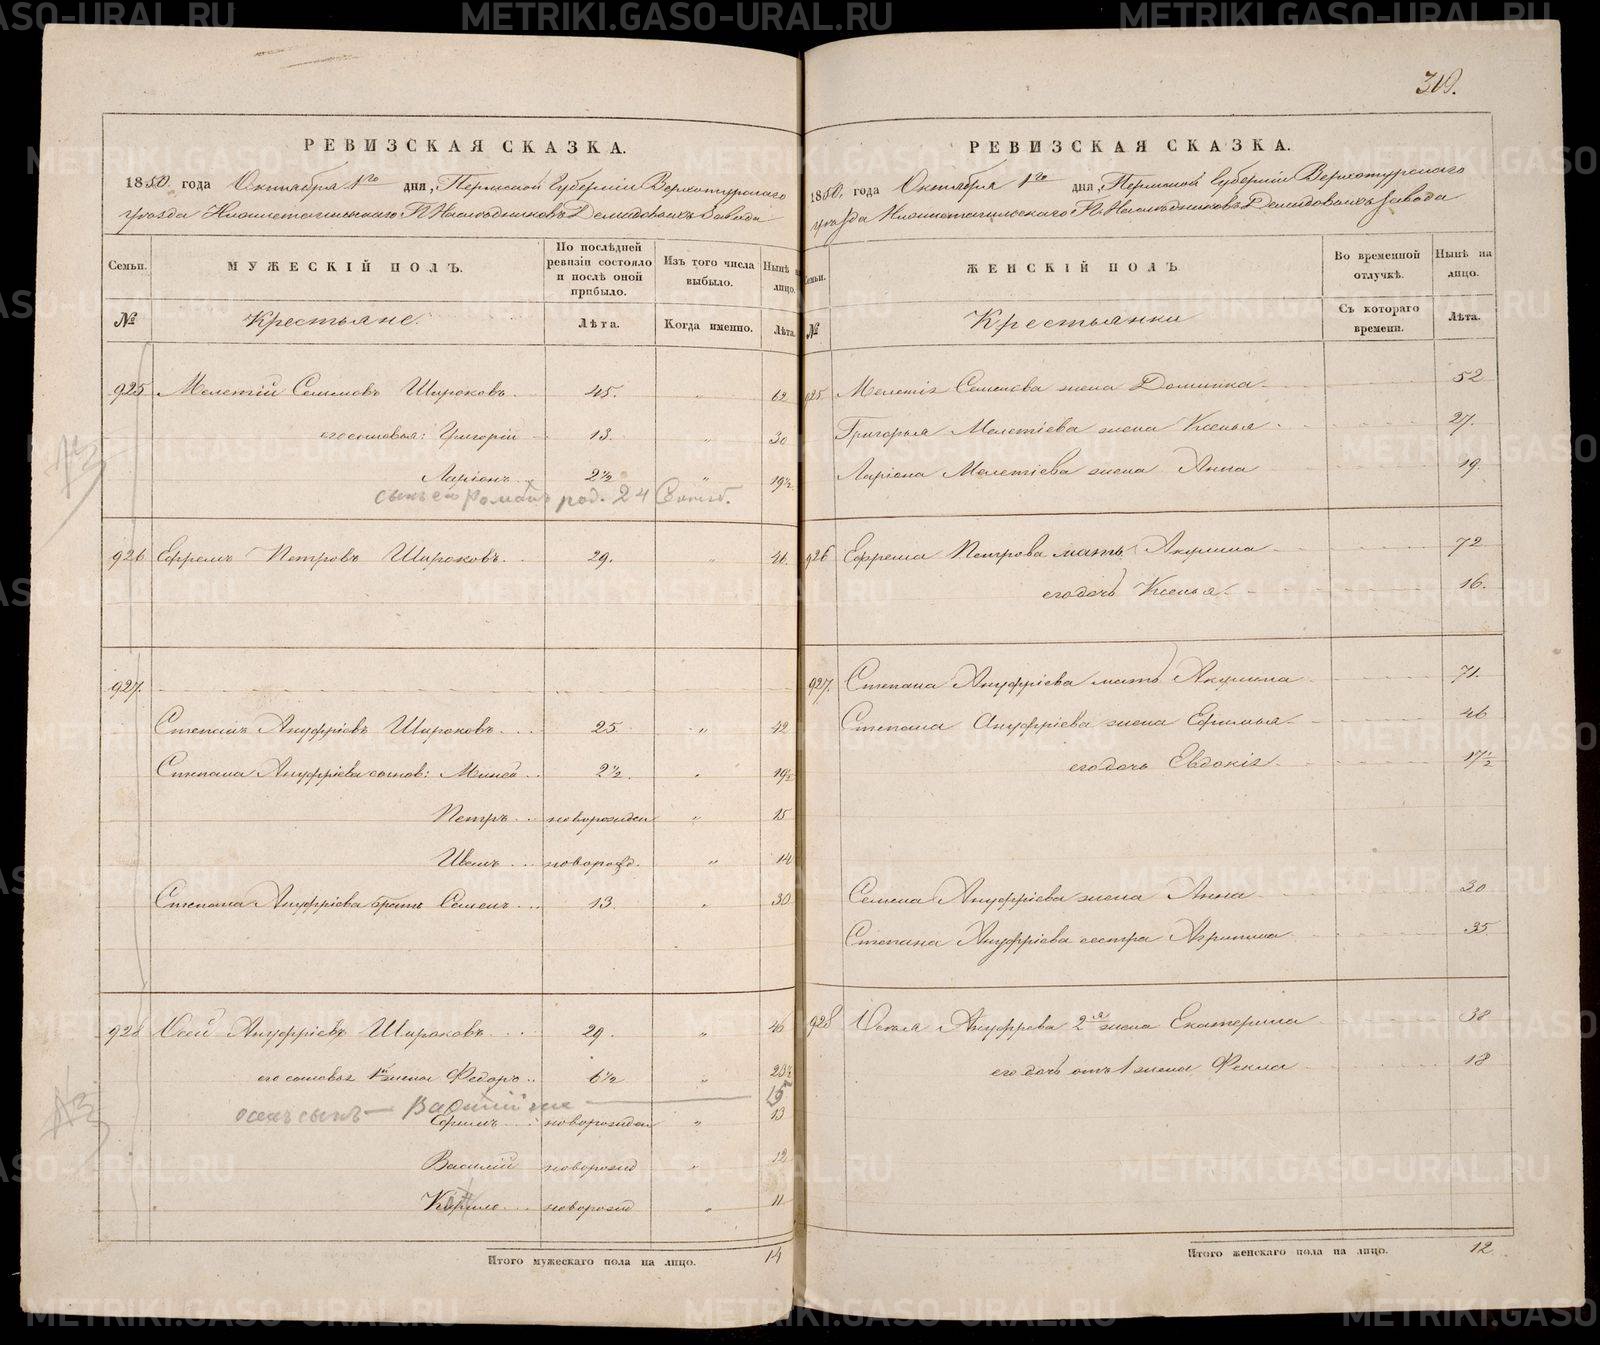 METRIKI.GASO-URAL.RU
310.
РЕВИЗСКАЯ СКАЗКА.
1850. года Октября 1го дня, Пермской Губерніи Верхотурскаго
уѣзда Нижнетагильскаго Гг. Наслѣдниковъ Демидовыхъ Завода
Семьи. МУЖЕСКІЙ ПОЛЪ. По послѣдней ревизіи состояло и послѣ оной прибыло. Изъ того числа выбыло. Нынѣ на лицо.
№ Крестьяне. Лѣта. Когда именно. Лѣта.
925 Мелетій Семеновъ Широковъ 45. " 62
его сыновья: Григорій 13. " 30
Ларіонъ 2½ " 19½
сынъ его Романъ род. 24 Сентяб.
926 Ефремъ Петровъ Широковъ 29. " 46.
927.
Степанъ Ануфріевъ Широковъ 25. " 42
Степана Ануфріева сынов: 2½ " 19½
Петръ новорожден " 15
Иванъ новорожд. " 14
Степана Ануфріева братъ Семенъ 13. " 30
928 Осей Ануфріевъ Широковъ 29. " 46
его сыновья 1й жены Федоръ 6½ " 23½
сынъ — 15
Ефимъ новорожден " 13
Василій новорожд " 12
Кирило новорожд " 11
Итого мужескаго пола на лицо. 14
РЕВИЗСКАЯ СКАЗКА.
1850, года Октября 1го дня, Пермской Губерніи Верхотурскаго
уѣзда Нижнетагильскаго Гг. Наслѣдниковъ Демидовыхъ Завода
Семьи. ЖЕНСКІЙ ПОЛЪ Во временной отлучкѣ. Нынѣ на лицо.
№ Крестьянки Съ котораго времени. Лѣта.
925. Мелетія Семенова жена Домника 52
Григорья Мелетіева жена Ксенья 27.
Ларіона Мелетіева жена Анна 19.
926 Ефрема Петрова мать Акулина 72
его дочь Ксенья 16.
927. Степана Ануфріева мать Акулина 71.
Степана Ануфріева жена Ефимья 46
его дочь Евдокія 17½
Семена Ануфріева жена Анна 30
Степана Ануфріева сестра 35
928 Ануфрева 2я жена Екатерина 38
его дочь отъ 1 жены Фекла 18
Итого женскаго пола на лицо. 12